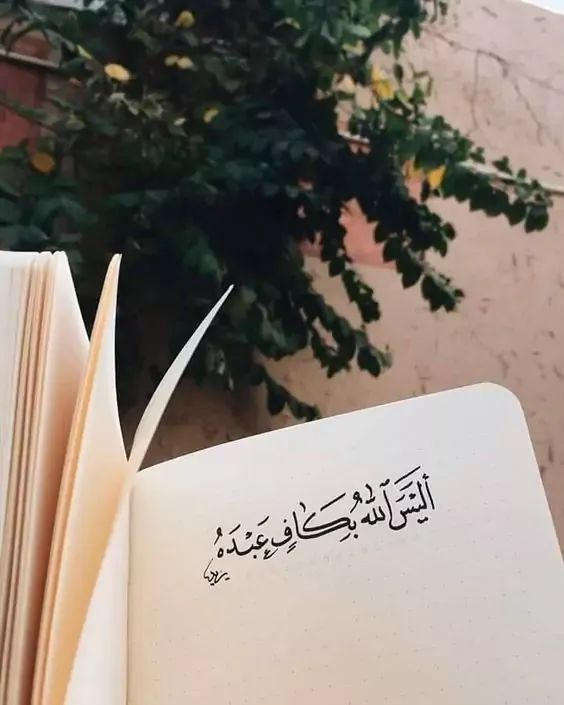 أَلَيْسَ ٱللَّهُ بِكَافٍ عَبْدَهُ